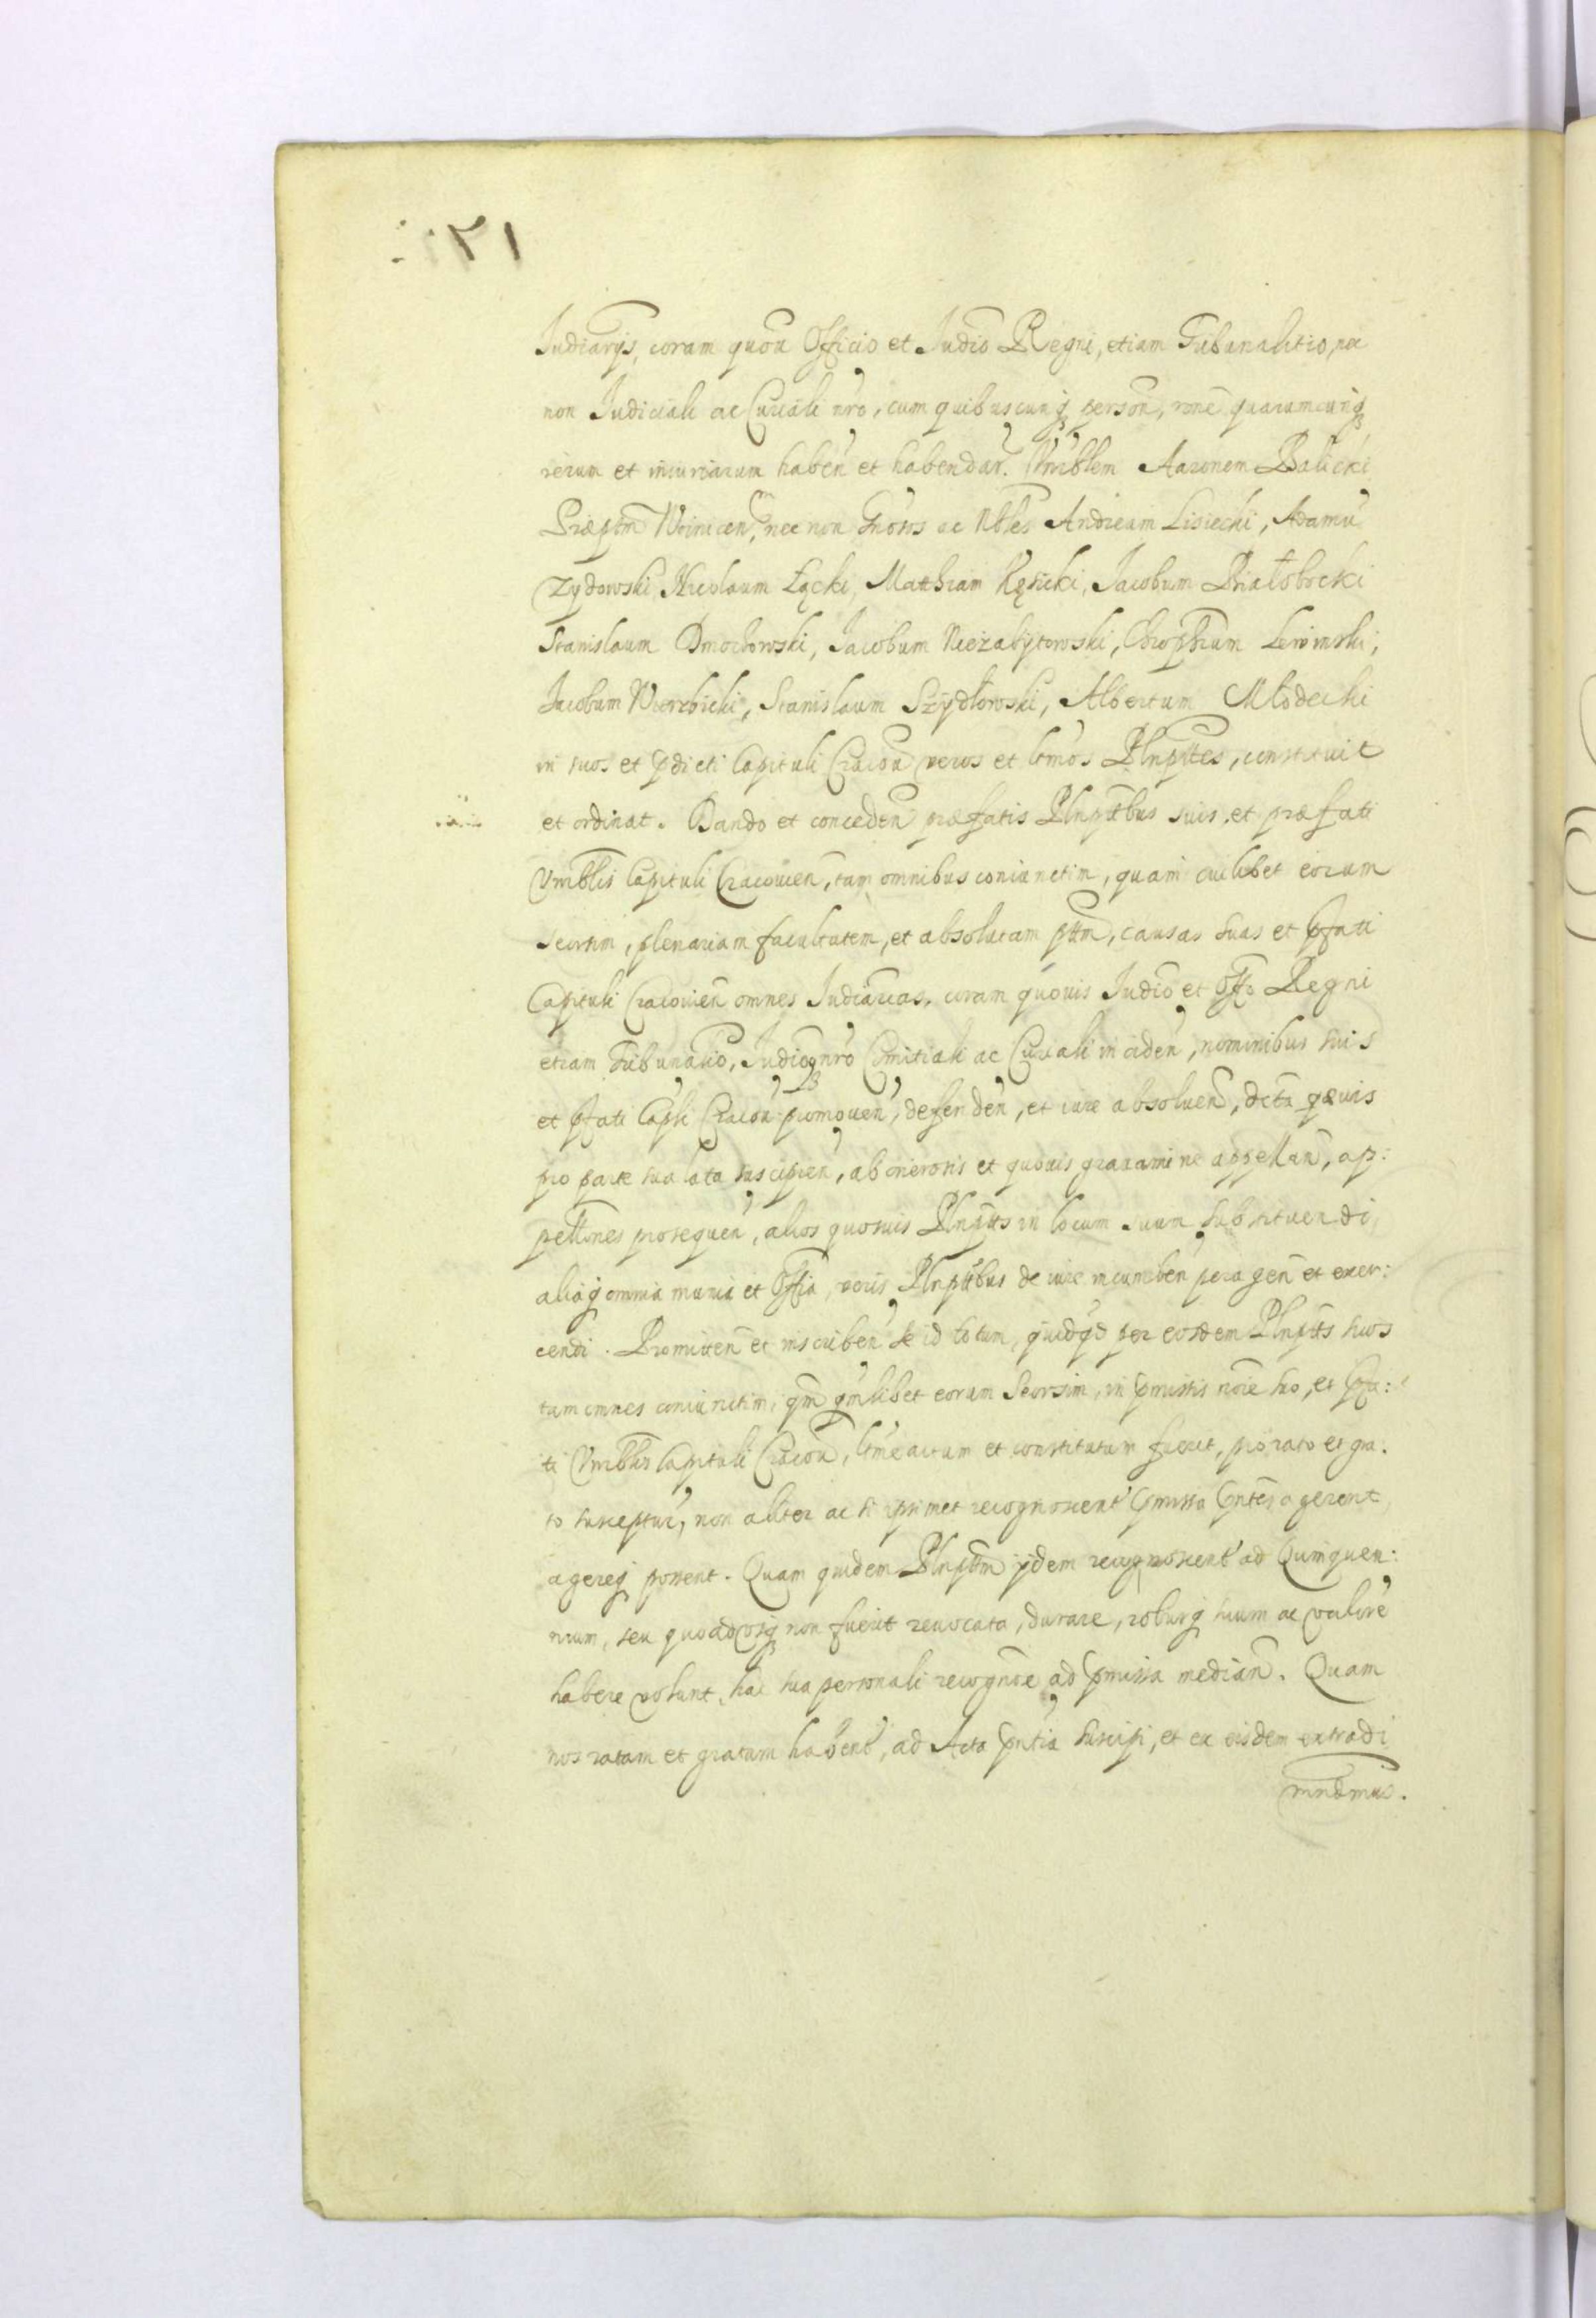 Judiarijs, coram quou Officio et Judio Regni, etiam Tribunalitio, nec
non Judiciali ac Curiali nro, cum quibuscunq person, rone quarumcunq
rerum et iniuriarum haben et habendar. Vnrblem Aaronem Balicki
Præptm Woinicen, nec non Gnosos ac Nbles Andream Lisiecki, Adamu
Zydowski Nicolaum Łącki, Matthiam Kęsicki, Jacobum Białobrcki
Stanislaum Dmochowski, Jacobum Niezabÿtowski, Chrophrum Lewinski,
Jacobum Wierzbicki, Stanislaum Szÿdłowski, Albertum Młodecki
in suos et pdicti Capituli Cracou veros et ltmos Plnpttes, constituit
et ordinat. Dando et conceden præfatis Plnpttbus suis, et præfati
Vnrblis Capituli Cracouien, tam omnibus coniunctim, quam cuilibet eorum
seorsim, plenariam facultatem, et absolutam pttm, causas suas et pfati
Capituli Cracouien omnes Judiarias, coram quouis Judio et Offo Regni
etiam Tribunalio, Judioq nro Comitiali ac Curiali inciden, nominibus suis
et pfati Capli Cracou promouen, defenden, et iure absoluen, dcta quævis
pro parte sua lata suscipien, ab onerosis et quouis grauamine appellan, ap:
pellones prosequen, alios quosuis Plnptts in locum suum substituendi,
aliaq omnia munia et Offia, veris Plnpttbus de iure incumben peragen et exer:
cendi. Promitten et inscriben se id totum, quidqd per eosdem Plnptts suos
tam omnes coniunctim, qm qmlibet eorum seorsim, in pmissis noie suo, et pfa:
ti Vnrblis Capituli Cracou, ltme actum et constitutum fuerit, pro rato et gra:
to susceptur, non aliter ac si ipsimet recognoscent pmissa pntes agerent
agereq possent. Quam quidem Plnpttm ijdem recognoscent ad Quinquen:
nium, seu quoadvsq non fuerit reuocata, durare, roburq suum ac valore
habere volunt, hac sua personali recognoe ad pmissa median. Quam
nos ratam et gratam habent, ad Acta pntia suscipi, et ex eisdem extradi
mndmus.